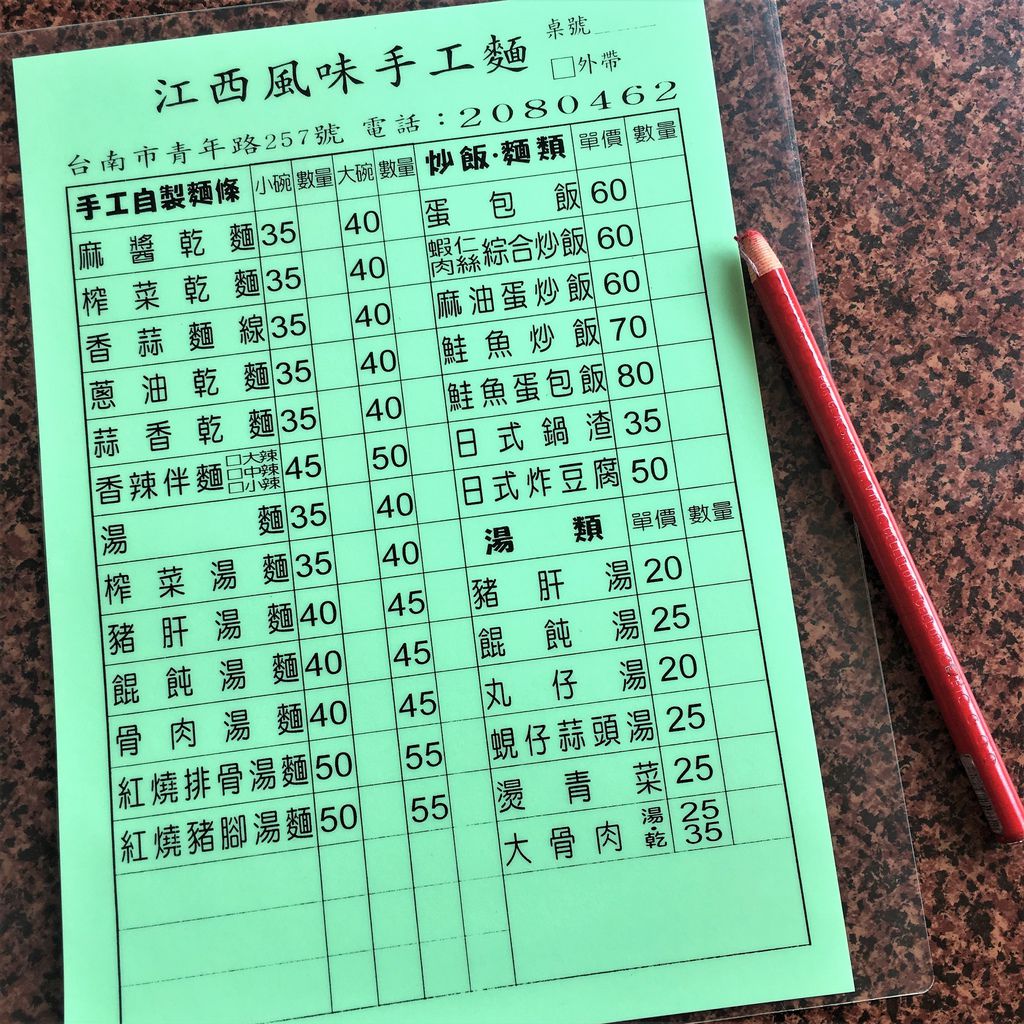 江西風味手工麵
桌號
□外帶
台南市青年路257號 電話：2080462
手工自製麵條 小碗 數量 大碗 數量
麻醬乾麵 35 40
榨菜乾麵 35 40
香蒜麵線 35 40
蔥油乾麵 35 40
蒜香乾麵 35 40
香辣伴麵 □大辣 □中辣 □小辣 45 50
湯麵 35 40
榨菜湯麵 35 40
豬肝湯麵 40 45
餛飩湯麵 40 45
骨肉湯麵 40 45
紅燒排骨湯麵 50 55
紅燒豬腳湯麵 50 55
炒飯·麵類 單價 數量
蛋包飯 60
蝦仁肉絲綜合炒飯 60
麻油蛋炒飯 60
鮭魚炒飯 70
鮭魚蛋包飯 80
日式鍋渣 35
日式炸豆腐 50
湯類 單價 數量
豬肝湯 20
餛飩湯 25
丸仔湯 20
蜆仔蒜頭湯 25
燙青菜 25
大骨肉 湯·乾 25 35